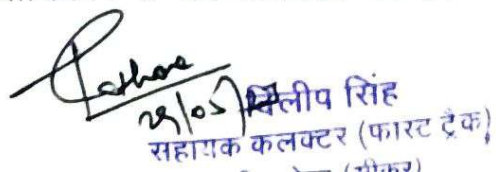 Rathore
29/05
दिलीप सिंह
सहायक कलक्टर (फास्ट ट्रैक)
(सीकर)